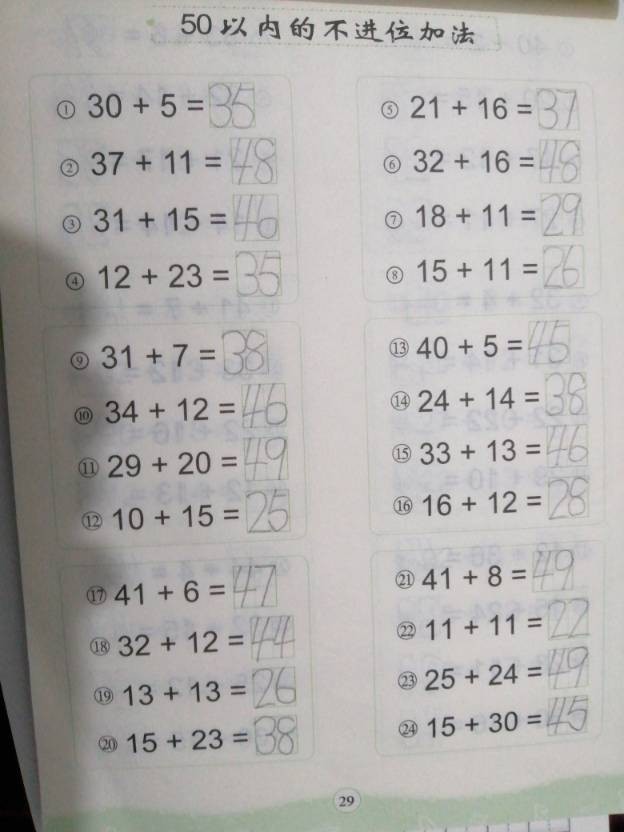 50以内的不进位加法
① 30 + 5 = 35
② 37 + 11 = 48
③ 31 + 15 = 46
④ 12 + 23 = 35
⑤ 21 + 16 = 37
⑥ 32 + 16 = 48
⑦ 18 + 11 = 29
⑧ 15 + 11 = 26
⑨ 31 + 7 = 38
⑩ 34 + 12 = 46
⑪ 29 + 20 = 49
⑫ 10 + 15 = 25
⑬ 40 + 5 = 45
⑭ 24 + 14 = 38
⑮ 33 + 13 = 46
⑯ 16 + 12 = 28
⑰ 41 + 6 = 47
⑱ 32 + 12 = 44
⑲ 13 + 13 = 26
⑳ 15 + 23 = 38
㉑ 41 + 8 = 49
㉒ 11 + 11 = 22
㉓ 25 + 24 = 49
㉔ 15 + 30 = 45
29